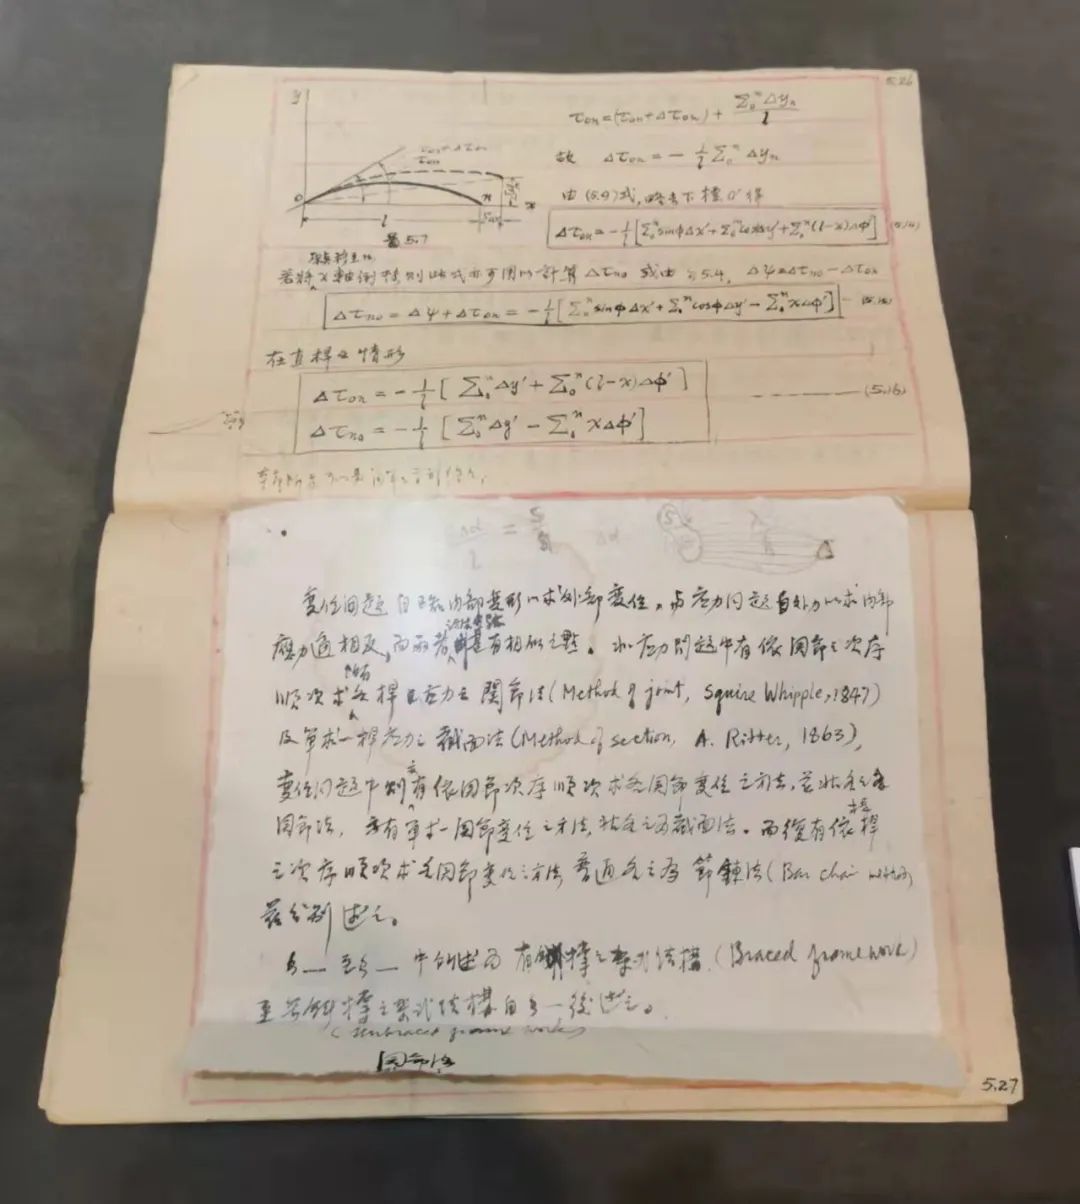 5.26
y
τon+Δτon
τon
O
n
x
l
圖5.7
τon=(τon+Δτon)+ Σ₀ⁿΔyn/l
故 Δτon = - 1/l Σ₀ⁿ Δyn
由(5.9)式,略去下標0得
Δτon = -1/l [Σ₀ⁿsinφΔx'+Σ₀ⁿcosφΔy'+Σ₀ⁿ(l-x)Δφ']
若將x軸倒轉,則此式亦可用以計算Δτno 或由 5.4, Δψ=Δτno-Δτon
Δτno = Δψ+Δτon = -1/l [Σ₀ⁿsinφΔx'+Σ₀ⁿcosφΔy'-Σ₀ⁿxΔφ']
在直桿之情形
Δτon = -1/l [Σ₀ⁿΔy'+Σ₀ⁿ(l-x)Δφ']
(5.16)
Δτno = -1/l [Σ₀ⁿΔy'-Σ₀ⁿxΔφ']
變位問題自已知內部變形以求外部變位,與應力問題自外力以求內部
應力適相反,而兩者甚有相似之點。如應力問題中有依關節之次序
順次求各桿應力之關節法(Method of joint, Squire Whipple, 1847)
及單求一桿應力之截面法(Method of section, A. Ritter, 1863),
變位問題中則亦有依關節次序順次求各關節變位之方法,茲姑名之為
關節法,亦有單求一關節變位之方法,姑名之為截面法。而復有依桿
之次序順次求各關節變位之方法,普通名之為節鍊法(Bar chain method)
茲分別述之。
中所述為有斜撐之架式結構.(Braced framework)
至無斜撐之架式結構自 後述之。
(unbraced frame work)
關節法
5.27